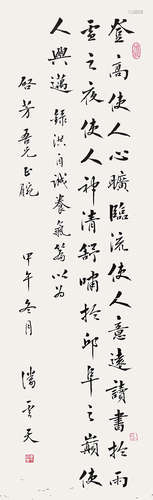 登高使人心曠臨流使人意遠讀書於雨
雪之夜使人神清舒嘯於邱阜之巔使
人興邁 錄洪自誠養氣篇以為
啓芳吾兄正腕 甲午冬月 潘雲天